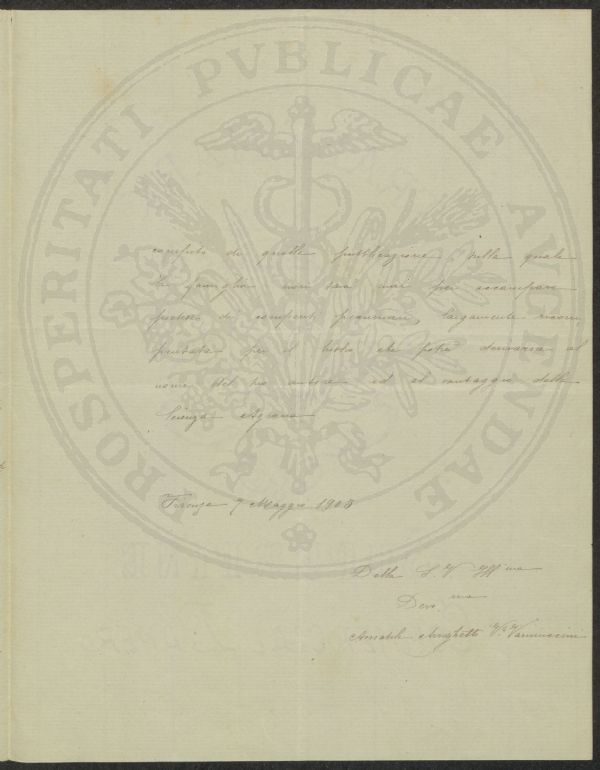 PROSPERITATI PVBLICAE AVGENDAE
compito di quella pubblicazione, dalla quale
la famiglia non sarà mai per accampare
pretese di compensi pecuniari, largamente ricom
pensata per il lustro che potrà derivarne al
nome del suo autore ed al vantaggio della
Scienza Agraria
Firenze 7 Maggio 1903
Della S. V. Ill.ma
Dev.ma
Vannuccini